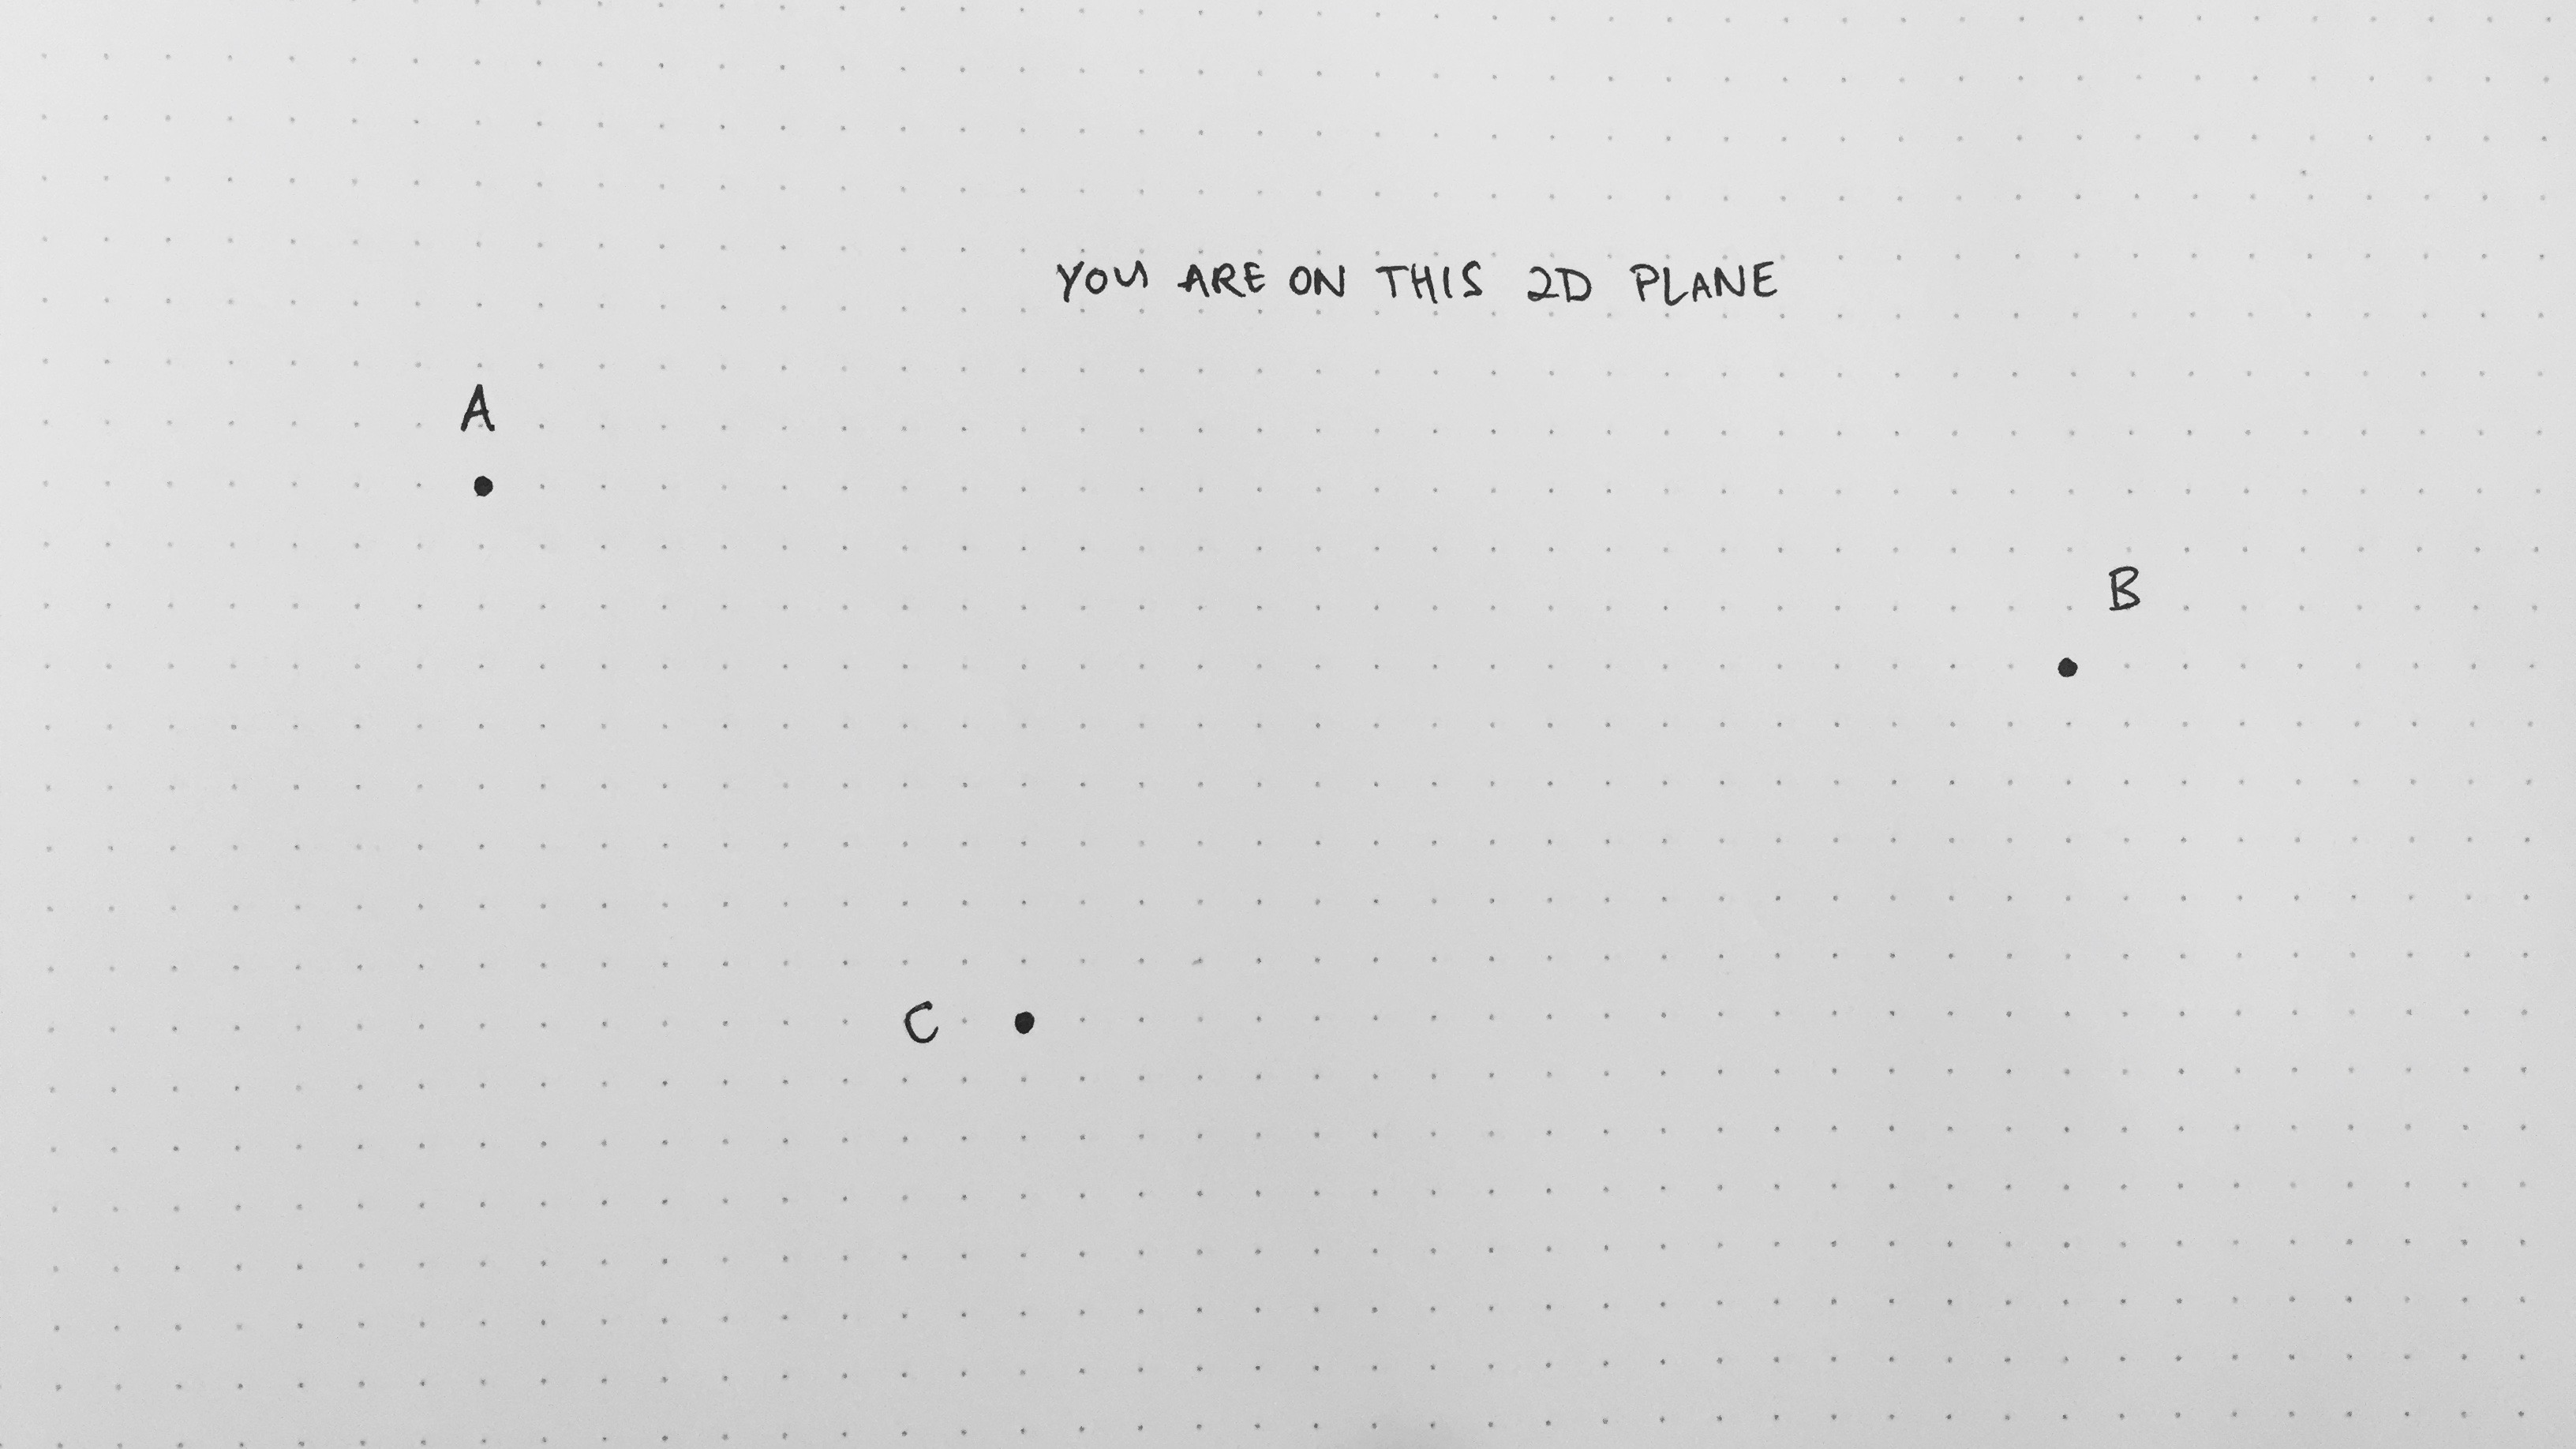 YOU ARE ON THIS 2D PLANE
A
B
C